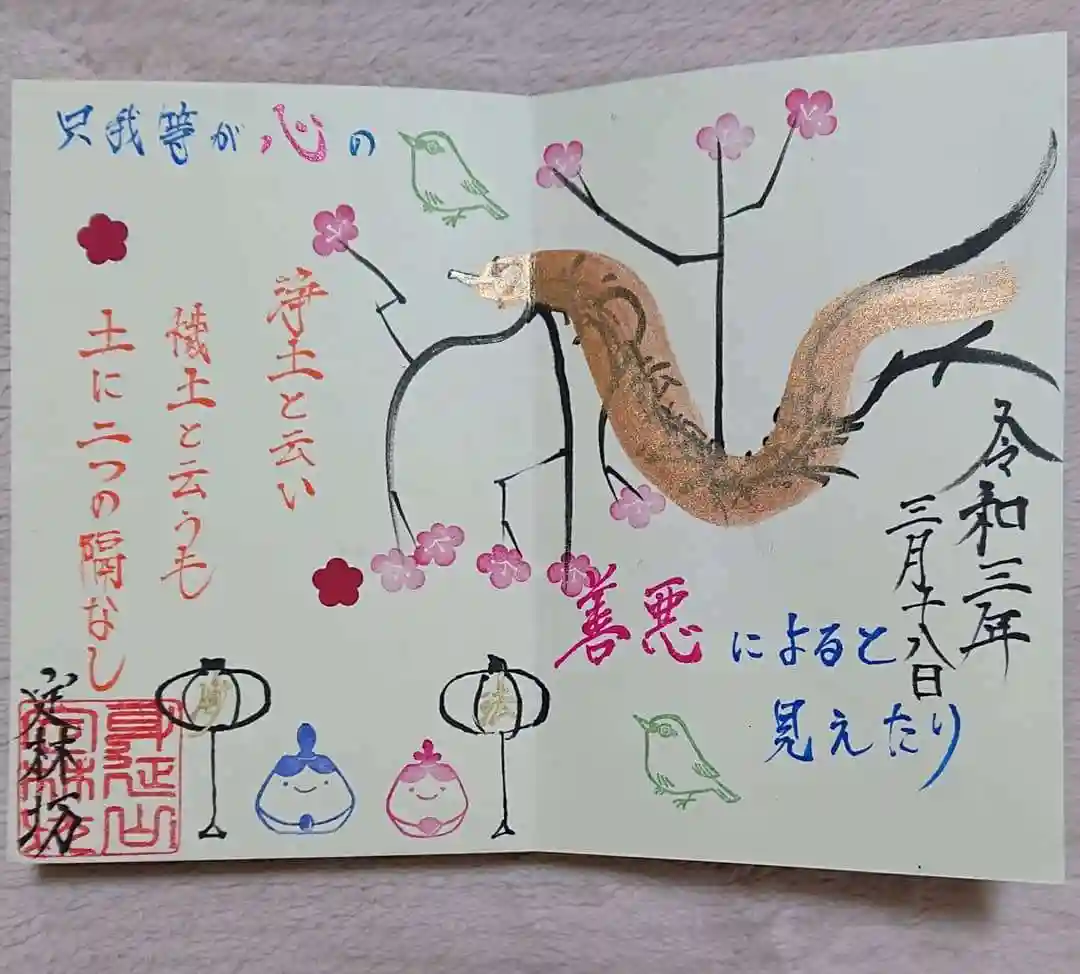 浄土と云い
穢土と云うも
土に二つの隔なし
只我等が心の
善悪によると
見えたり
令和三年
三月十八日
法
定林坊
身延山
定林坊